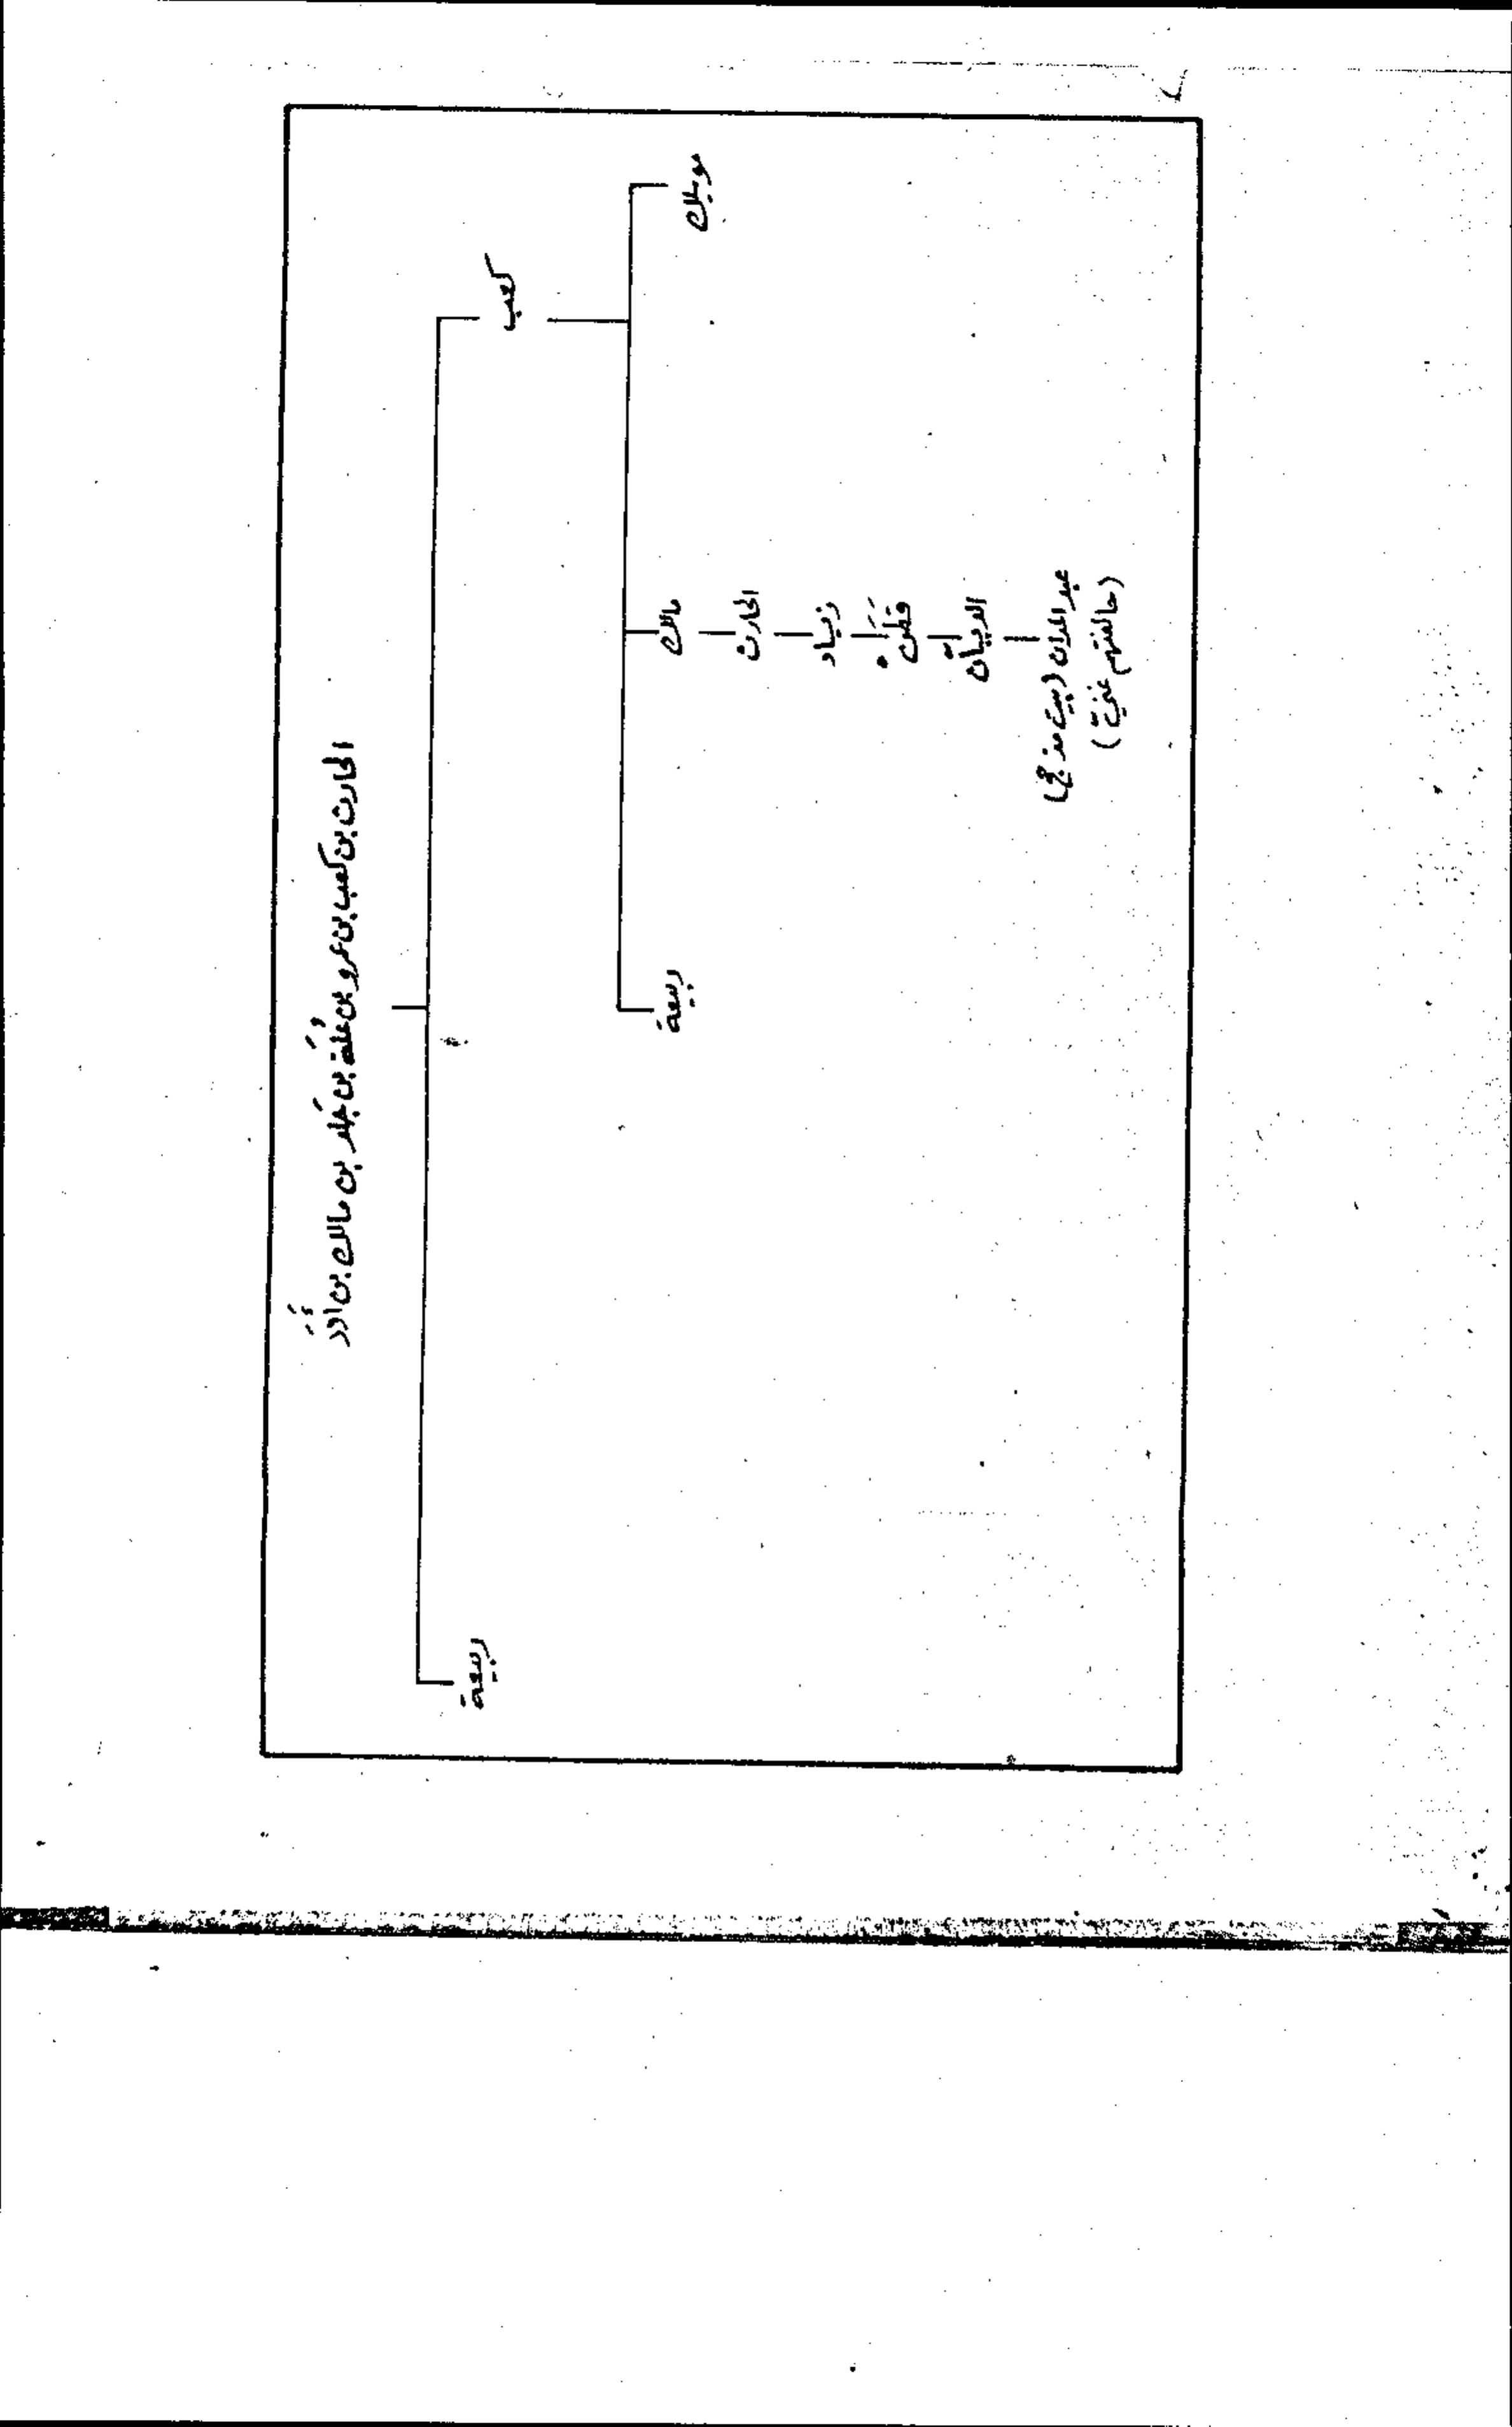 الحارث بن كعب بن عمرو بن عُلَة بن جَلد بن مالك بن أُدَد
كعب
ربيعة
مويلك
مالك
ربيعة
الحارث
زياد
قَطَن
الديّان
عبد المدان (بيت مذحج)
(حالفتهم غنيّ)